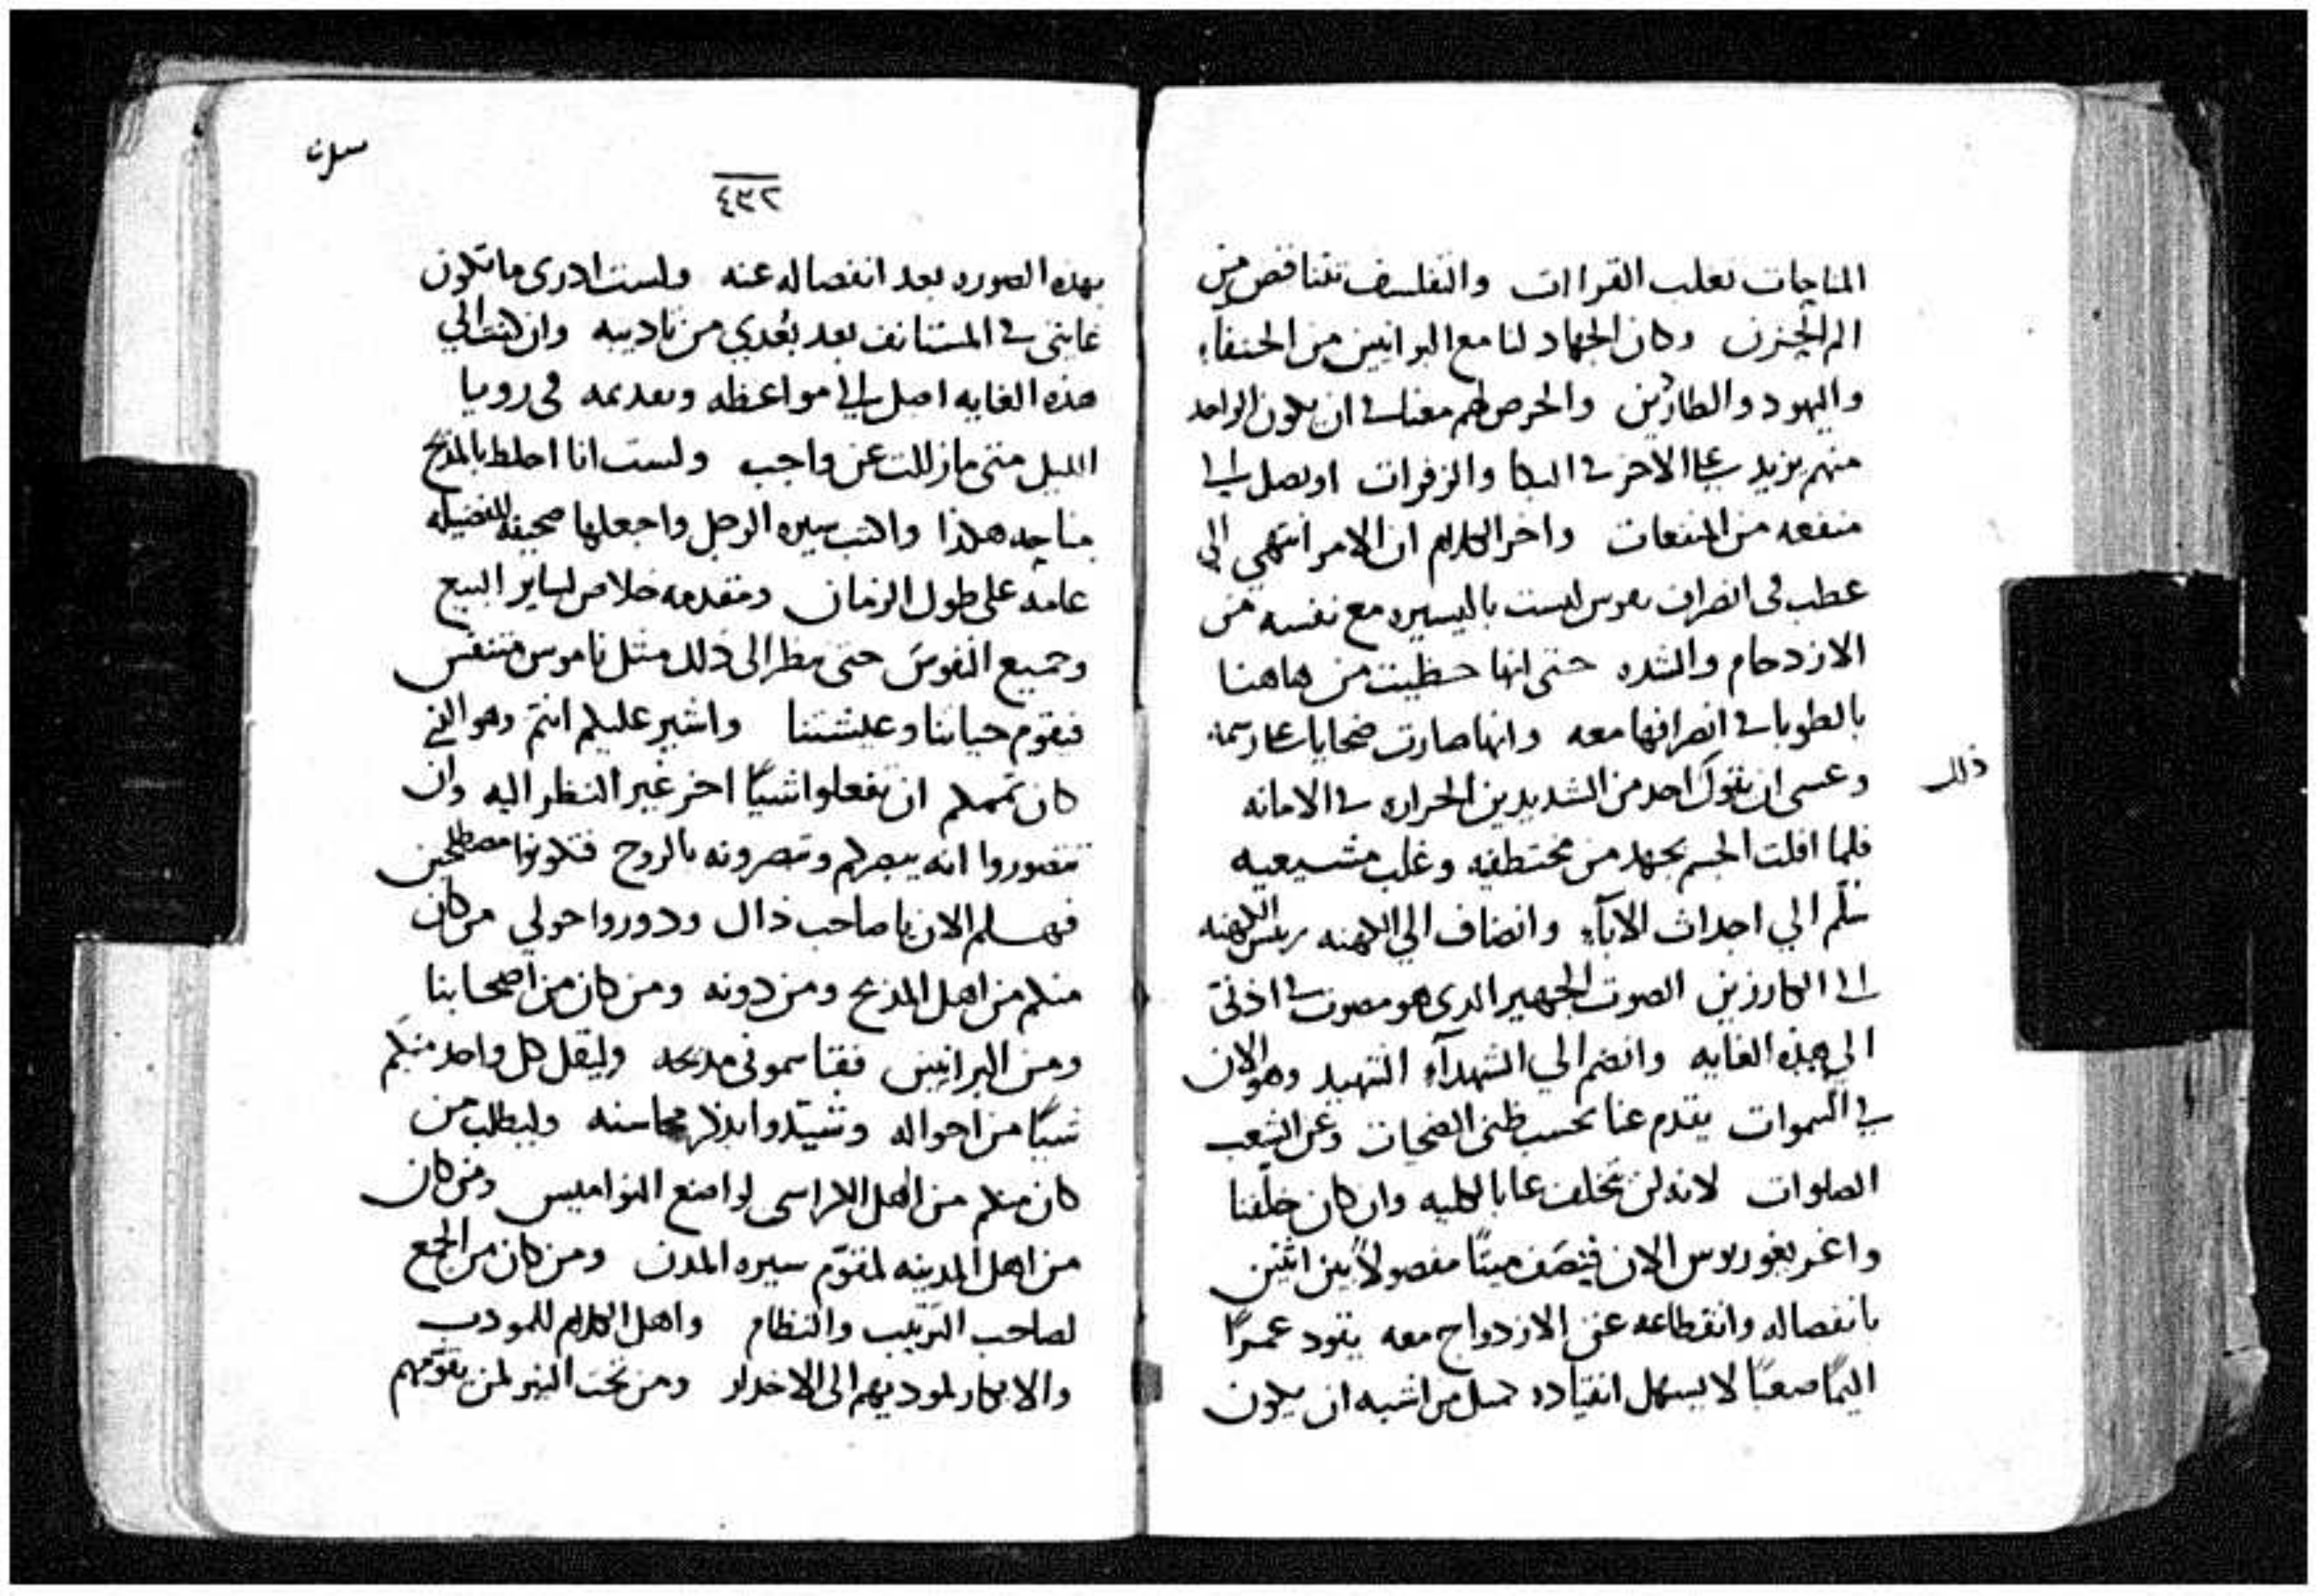 المناجات تغلب القراات والتفلسف تتناقض من
الم الحزن وكان الجهاد لنا مع البرانيين من الحنفآء
واليهود والطارئين والحرص لهم معنا في ان يكون الواحد
منهم يزيد على الاخر في البكا والزفرات او يصل الى
منفعه من المنفعات واخر الكلام ان الامر انتهي الى
عطب في انصراف نفوس ليست باليسيره مع نفسه من
الازدحام والشده حتى انها حظيت من هاهنا
بالطوبا في انصرافها معه وانها صارت ضحايا
وعسى ان يقول احد من الشديدين الحراره في الامانه
ذلك
فلما افلت الجسم بجهد من مختطفيه وغلب مشيعيه
سلّم الي اجداث الابآء وانضاف الي الكهنه رييس الكهنه
الى الكارزين الصوت الجهير الدى هو مصوت في اذنى
الي هذه الغايه وانضم الي الشهدآء الشهيد وهو الان
في السموات يقدم عنا بحسب ظنى الضحيات وعن الشعب
الصلوات لانه لن يخلف عنا بالكليه وان كان خلّفنا
واغريغوريوس الان فنِصَف ميتًا مفصولاً بين اثنين
بانفصاله وانقطاعه عن الازدواج معه يقود عمرًا
اليمًا صعبًا لا يسهل انقياده مثل من اشبه ان يكون
٤٣٢
بهده الصوره بعد انفصاله عنه ولست ادرى ما تكون
غايتى في المستانف بعد بُعدي من تاديبه وان كنت الي
هذه الغايه اصل الى مواعظه وتعديمه في رويا
الليل متى ما زللت عن واجب ولست انا اخلط بالمديح
مناحه هكذا واكتب سيره الرجل واجعلها صحيفه للفضيله
عامه على طول الزمان ومقدمه خلاص لساير البيع
وجميع النفوس حتى ننظر الى ذلك مثل ناموس متنفس
فنقوم حياتنا وعيشتنا واشير عليكم انتم وهو الذي
كان تممكم ان تفعلوا شيًا اخر غير النظر اليه وان
تتصوروا انه يبصركم وتبصرونه بالروح فتكونوا مصطلحين
فهسلم الان يا صاحب ذال ودوروا حولي من كان
منكم من اهل المذبح ومن دونه ومن كان من اصحابنا
ومن البرانيين فقاسموني مديحه وليقل كل واحد منكم
شيًا من احواله وشيّدوا بذكر محاسنه وليطلب من
كان منكم من اهل الكراسى لواضع النواميس ومن كان
من اهل المدينه لمقوّم سيره المدن ومن كان من الجمع
لصاحب الترتيب والنظام واهل الكلام للمودب
والابكار لموديهم الى الاخدار ومن تحت النير لمن يقوّمهم